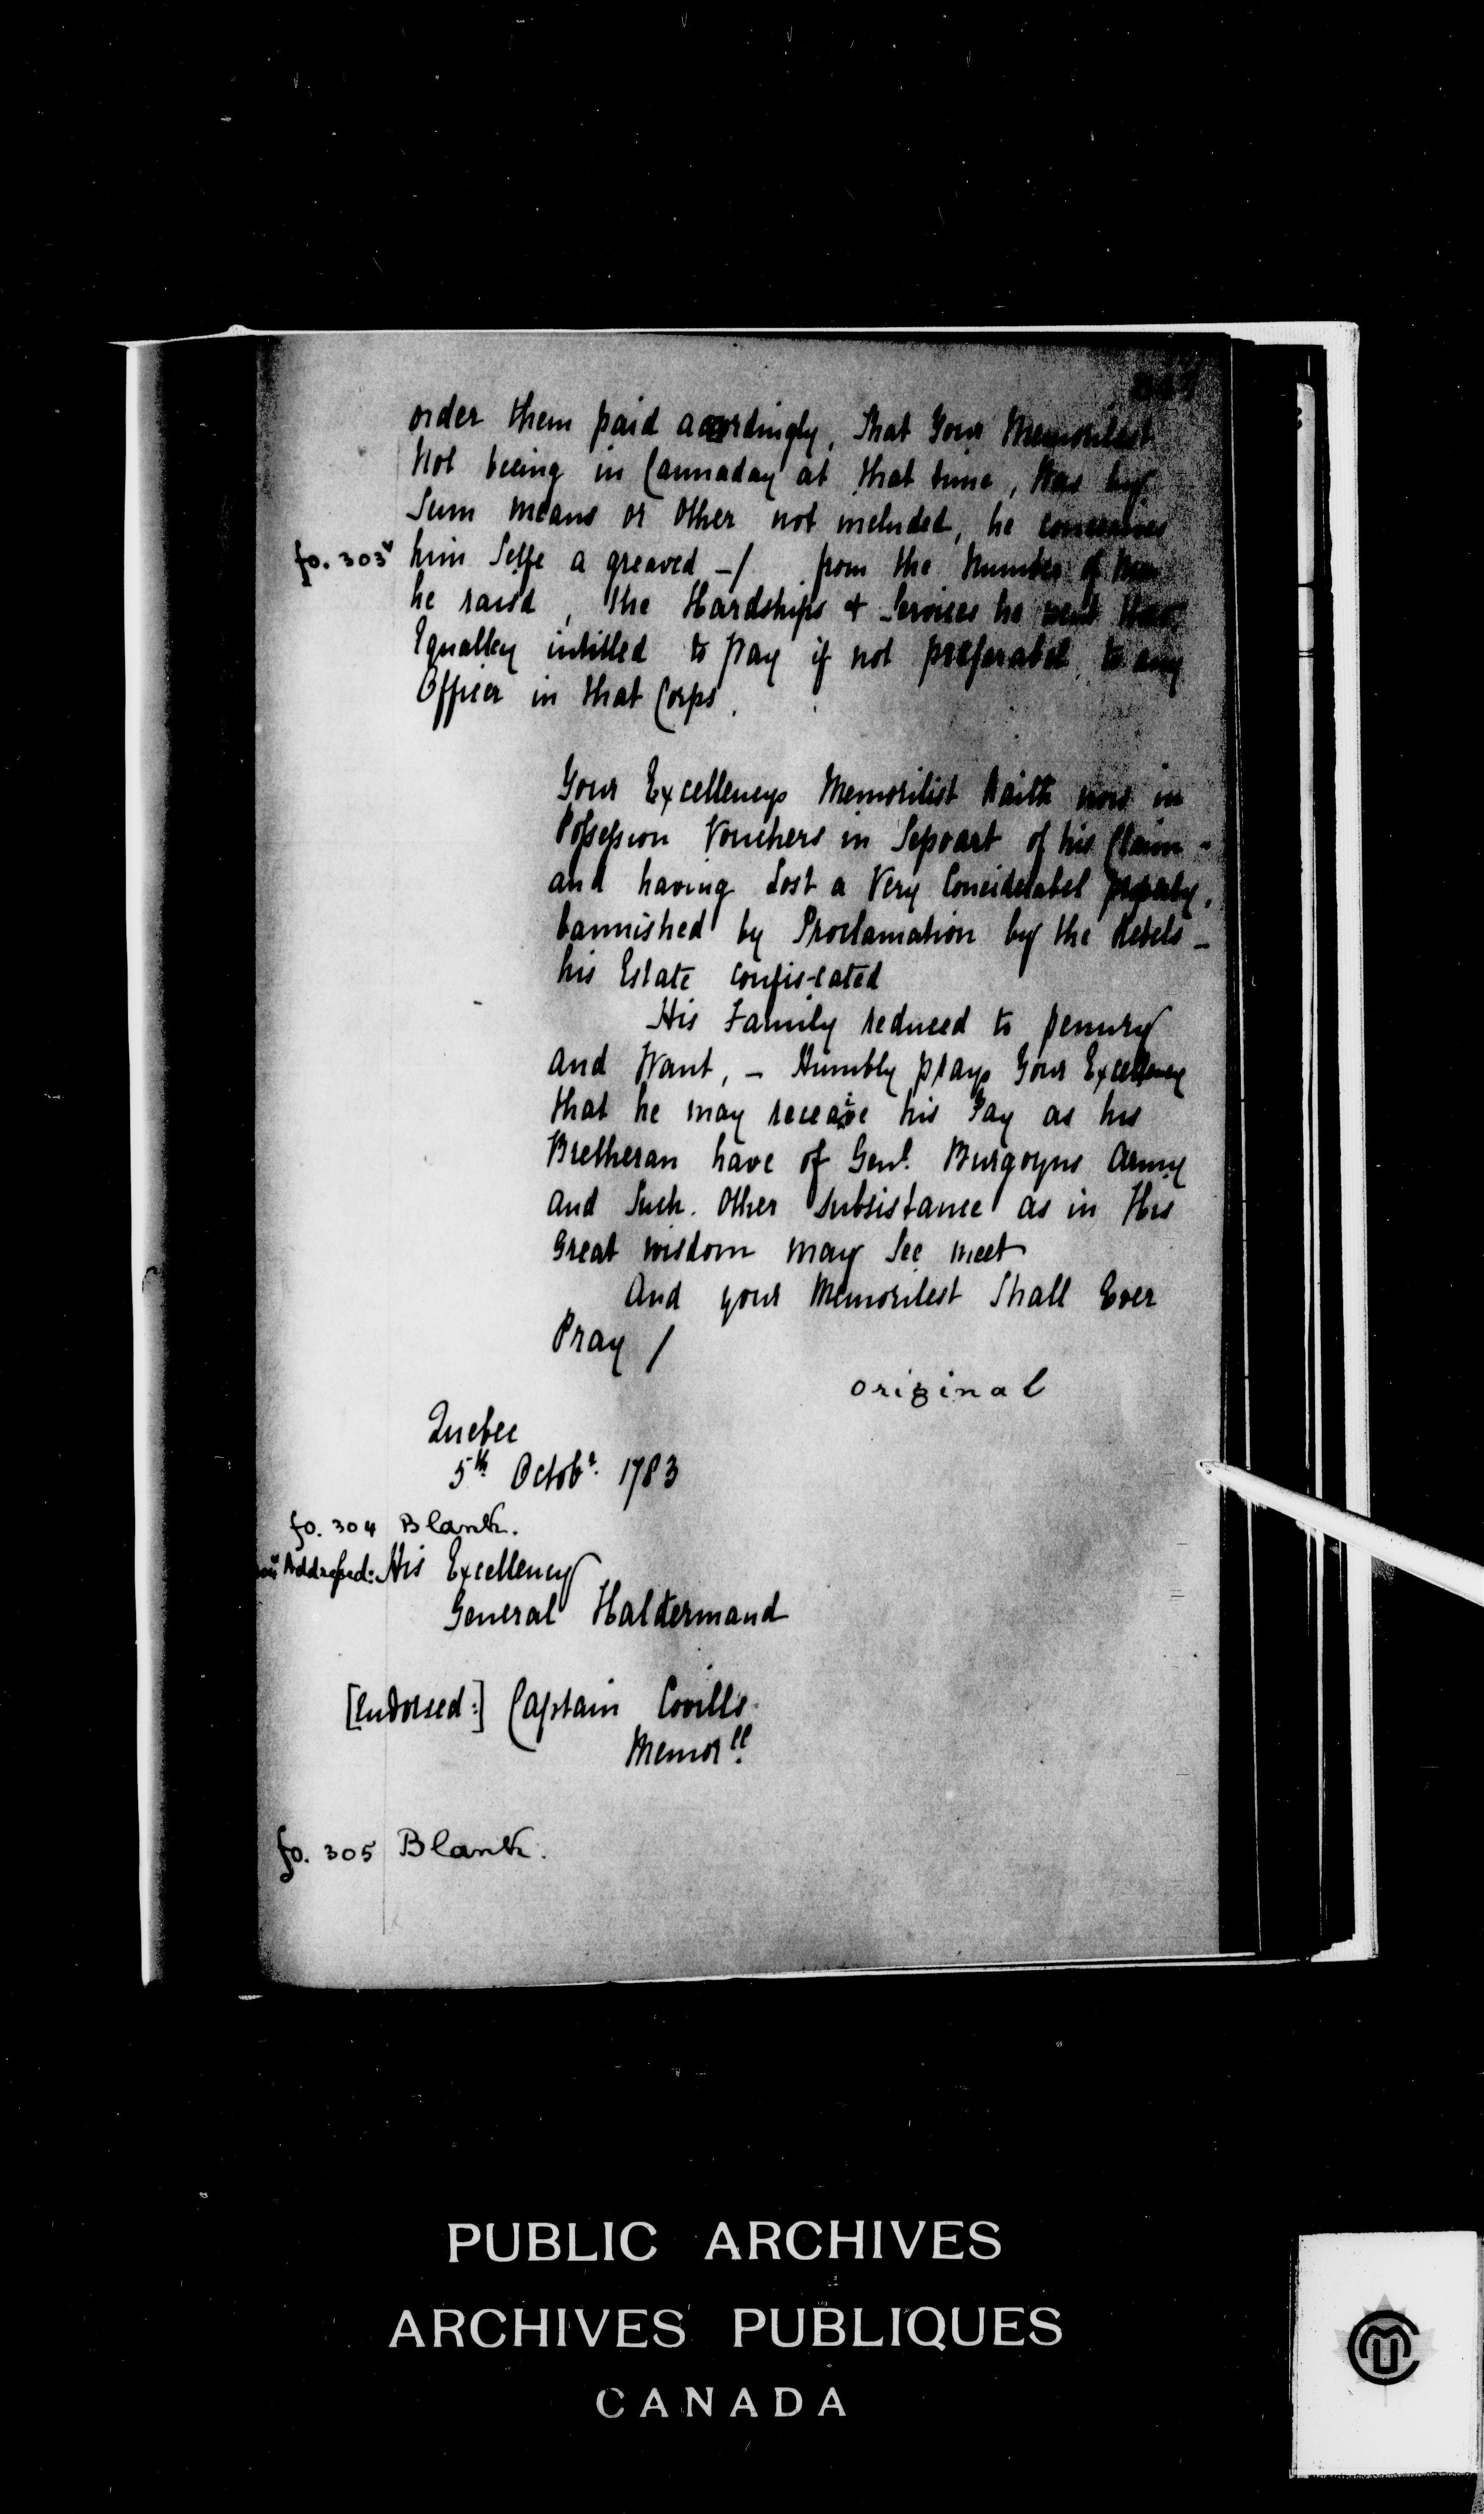 order them paid accordingly, That Your Memorilest
Not beeing in Cannaday at that time, Was by
Sum means or Other not included, he
fo. 303v him Selfe a greaved -/ from the Number of Men
he raisd, the Hardships & Services he went
Equalley intitled to Pay if not preferabel to any
Officer in that Corps.
Your Excellencys Memorilist haith now in
Possession Vouchers in Sepoart of his Claim -
and having Lost a Very Considerabel property,
bannished by Proclamation by the Rebels -
his Estate confis-cated
His Family reduced to penury
and Want, - Humbly prays Your Excellency
that he may receaive his Pay as his
Bretheran have of Genl. Burgoyns Army
and Such. Other Subsistance as in His
Great wisdom may See meet
And your Memorilest Shall Ever
Pray /
original
Quebec
5th Octobr. 1783
fo. 304 Blank.
Addressed: His Excellency
General Haldermand
[Endorsed:] Captain Covills
Memorll.
fo. 305 Blank.
PUBLIC ARCHIVES
ARCHIVES PUBLIQUES
CANADA